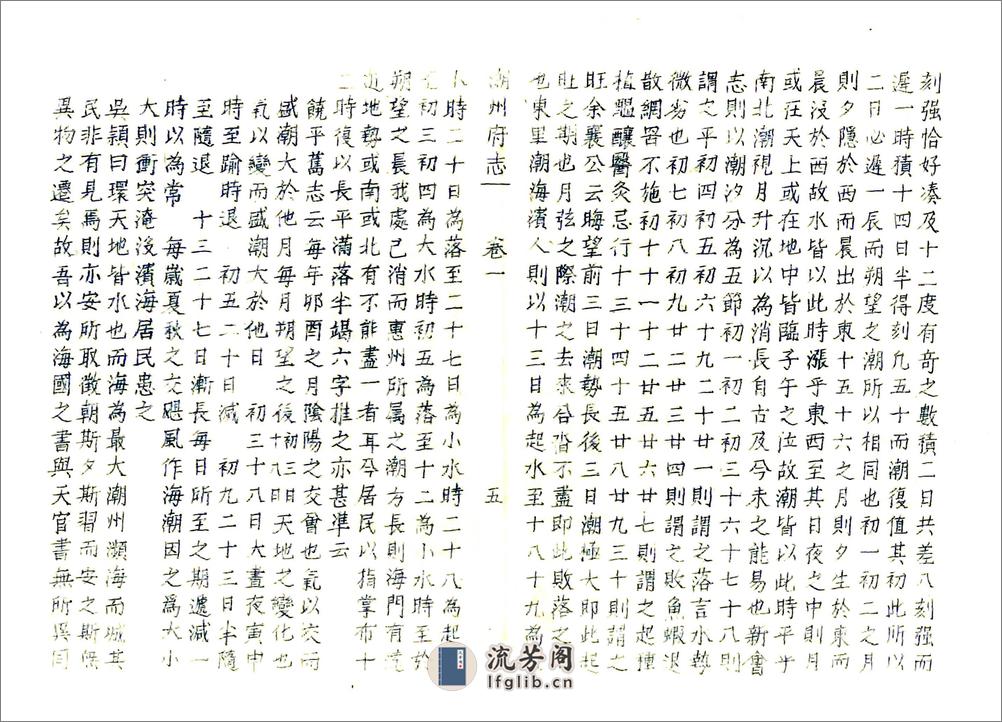 刻强恰好凑及十二度有奇之數積二日共差八刻强而
遲一時積十四日半得刻九五十而潮復值其初此所以
二日必遲一辰而朔望之潮所以相同也初一初二之月
則夕隱於西而晨出於東十五十六之月則夕生於東而
晨没於西故水皆以此時漲乎東西至其日夜之中則月
或在天上或在地中皆臨子午之位故潮皆以此時平乎
南北潮視月升沉以為消長自古及今未之能易也新會
志則以潮汐分為五節初一初二初三十六十七十八則
謂之平初四初五初六十九二十廿一則謂之落言水勢
微劣也初七初八初九廿二廿三廿四則謂之敗魚蝦退
散網罟不施初十十一十二廿五廿六廿七則謂之起種
植魍釀醫灸忌行十三十四十五廿八廿九三十則謂之
旺余襄公云晦望前三日潮勢長後三日潮極大即此起
旺之期也月弦之際潮之去來合沓不盡即此敗落之
也東里潮海濱人則以十三日為起水至十八十九為
潮州府志 卷一 五
小時二十日為落至二十七日為小水時二十八為起
初三初四為大水時初五為落至十二為小水時至於
朔望之長我處已消而惠州所属之潮方長則海門有遠
近地勢或南或北有不能盡一者耳今居民以指掌布十
二時復以長平滿落半竭六字推之亦甚準云
饒平舊志云每年夘酉之月陰陽之交會也氣以交而
盛潮大於他月每月朔望之後初三十八日天地之變化也
氣以變而盛潮大於他日 初三十八日大晝夜寅中
時至踰時退 初五二十日減 初九二十三日半隨
至隨退 十三二十七日漸長每日所至之期遞減一
時以為常 每歲夏秋之交颶風作海潮因之為大小
大則衝突淹没濱海居民患之
吳頴曰環天地皆水也而海為最大潮州瀕海而城其
民非有見焉則亦安所取徵朝斯夕斯習而安之斯保
異物之遷矣故吾以為海國之書與天官書無所異同
流芳阁
lfglib.cn